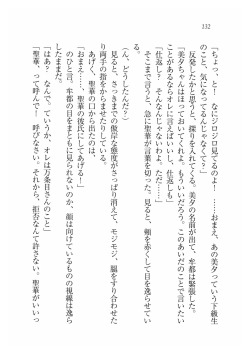 132
「ちょっと！　なにジロジロ見てるのよ！　……おまえ、あの美夕っていう下級生
のこと、気になってるんじゃなくて？」
反発したかと思うと、探りを入れてくる。美夕の名前が出て、牟都は緊張した。
「美夕ちゃんはほっておいてくれよ。もういいだろう。このあいだのことで言いたい
ことがあるならオレに言え。仕返し」
「仕返し？　そんなんじゃないわよ。ただ……」
そこまで言うと、急に聖華が言葉を切った。見ると、頬を赤くして目を逸らしてい
る。
（ん、どうしたんだ？）
見ると、さっきまでの傲岸な態度がさっぱり消えて、モジモジ、脇をすり合わせた
り両手の指をからませたりしている。
あげく、聖華の口から出たのは、
「おまえ……、聖華の彼氏にしてあげる！」
のひと言。牟都の目をまともに見られないのか、顔は向けているものの視線は逸ら
したままだ。
「はあ？　なんで。ていうか、オレは万条目さんのこと」
「聖華、って呼んで！　呼びなさい。それから、拒否なんて許さない。聖華がいいっ